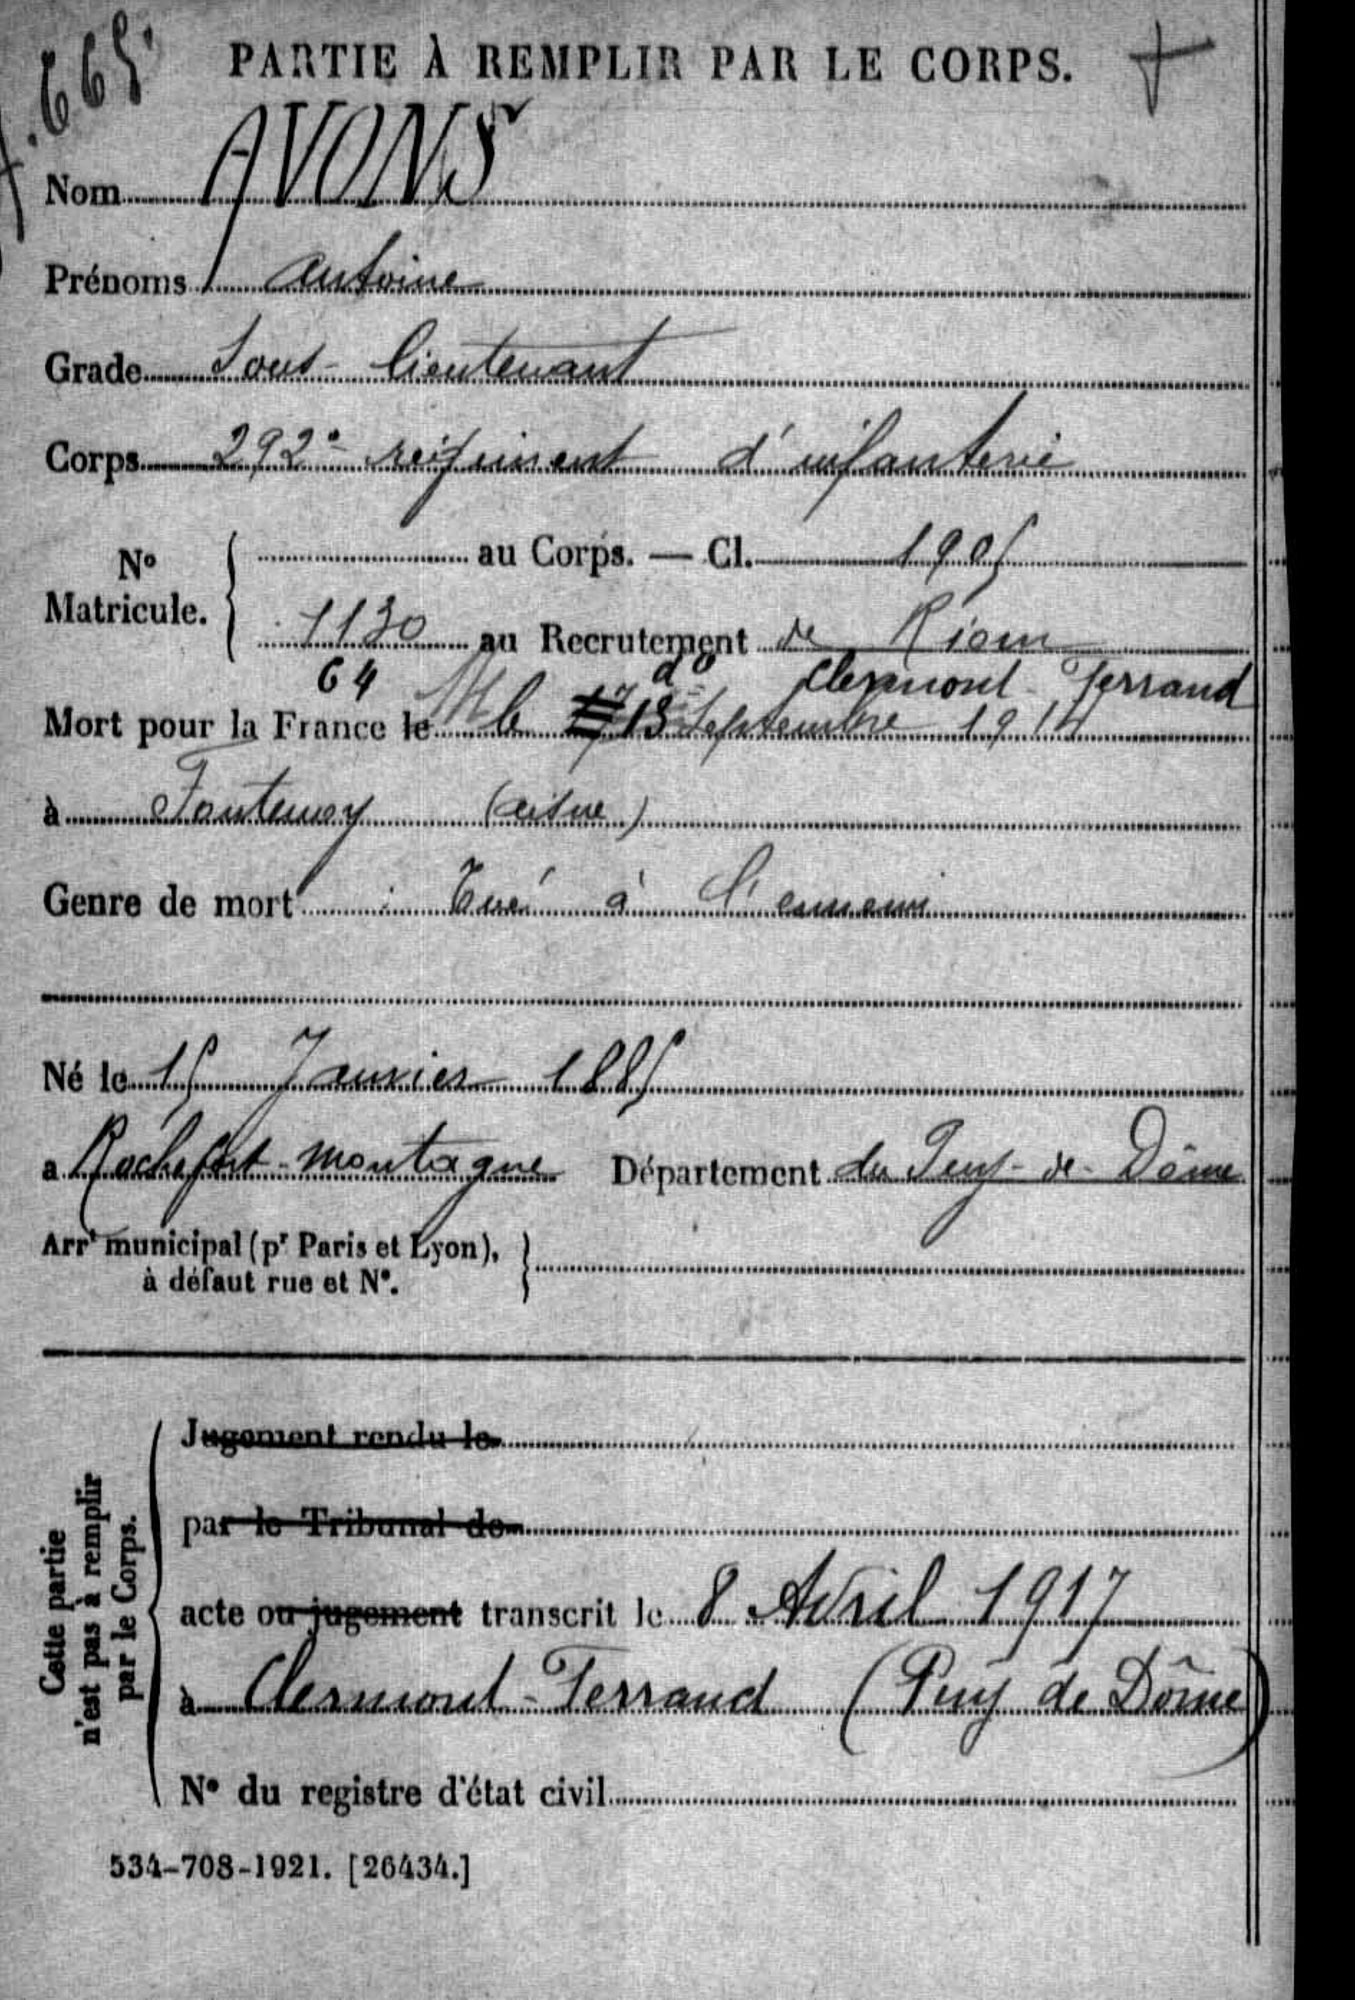 665
PARTIE À REMPLIR PAR LE CORPS.
Nom AVONS
Prénoms Antoine
Grade Sous-lieutenant
Corps 292e régiment d'infanterie
No Matricule.
au Corps. — Cl. 1905
1130 au Recrutement de Riom
64 do Clermont Ferrand
Mort pour la France le 13 Septembre 1914
à Fontenoy (Aisne)
Genre de mort : Tué à l'ennemi
Né le 15 Janvier 1885
à Rochefort-Montagne Département du Puy-de-Dôme
Arrt municipal (pr Paris et Lyon),
à défaut rue et No.
Cette partie
n'est pas à remplir
par le Corps.
Jugement rendu le
par le Tribunal de
acte ou jugement transcrit le 8 Avril 1917
à Clermont-Ferrand (Puy de Dôme)
No du registre d'état civil
534-708-1921. [26434.]